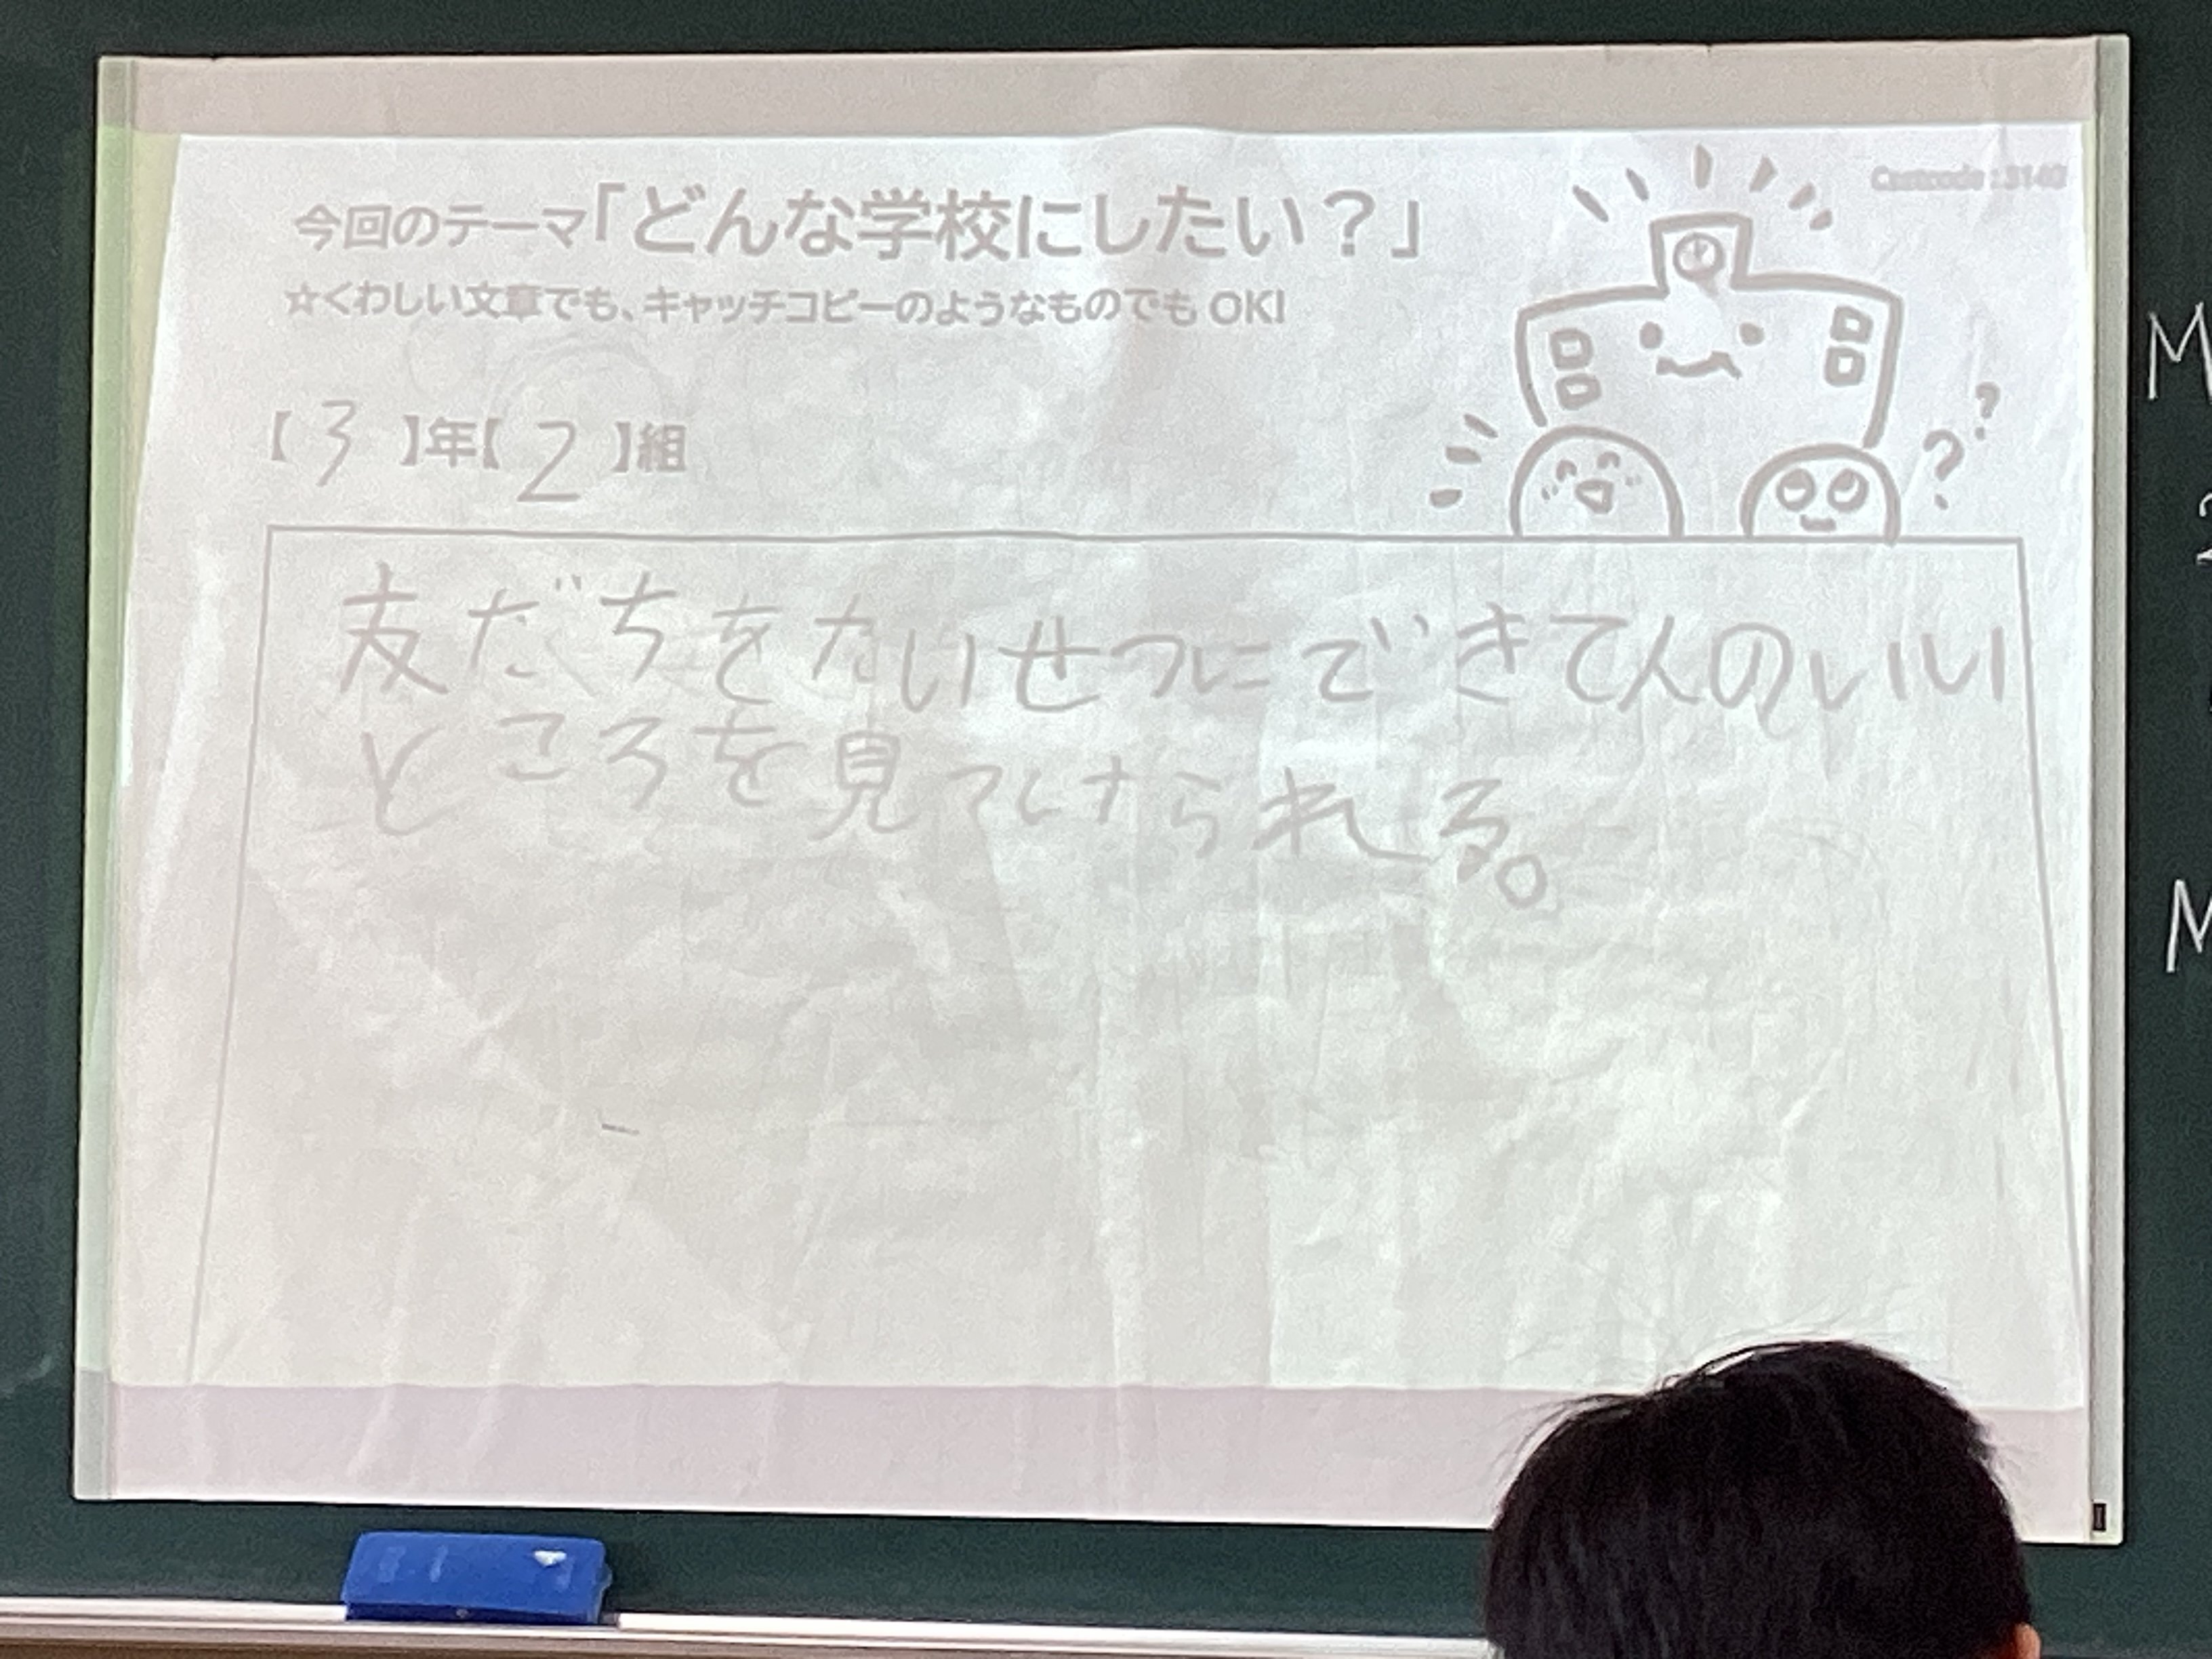 今回のテーマ「どんな学校にしたい？」
☆くわしい文章でも、キャッチコピーのようなものでもOK!
【3】年【2】組
友だちをたいせつにできて人のいい
ところを見つけられる。
? ?
M
2
M